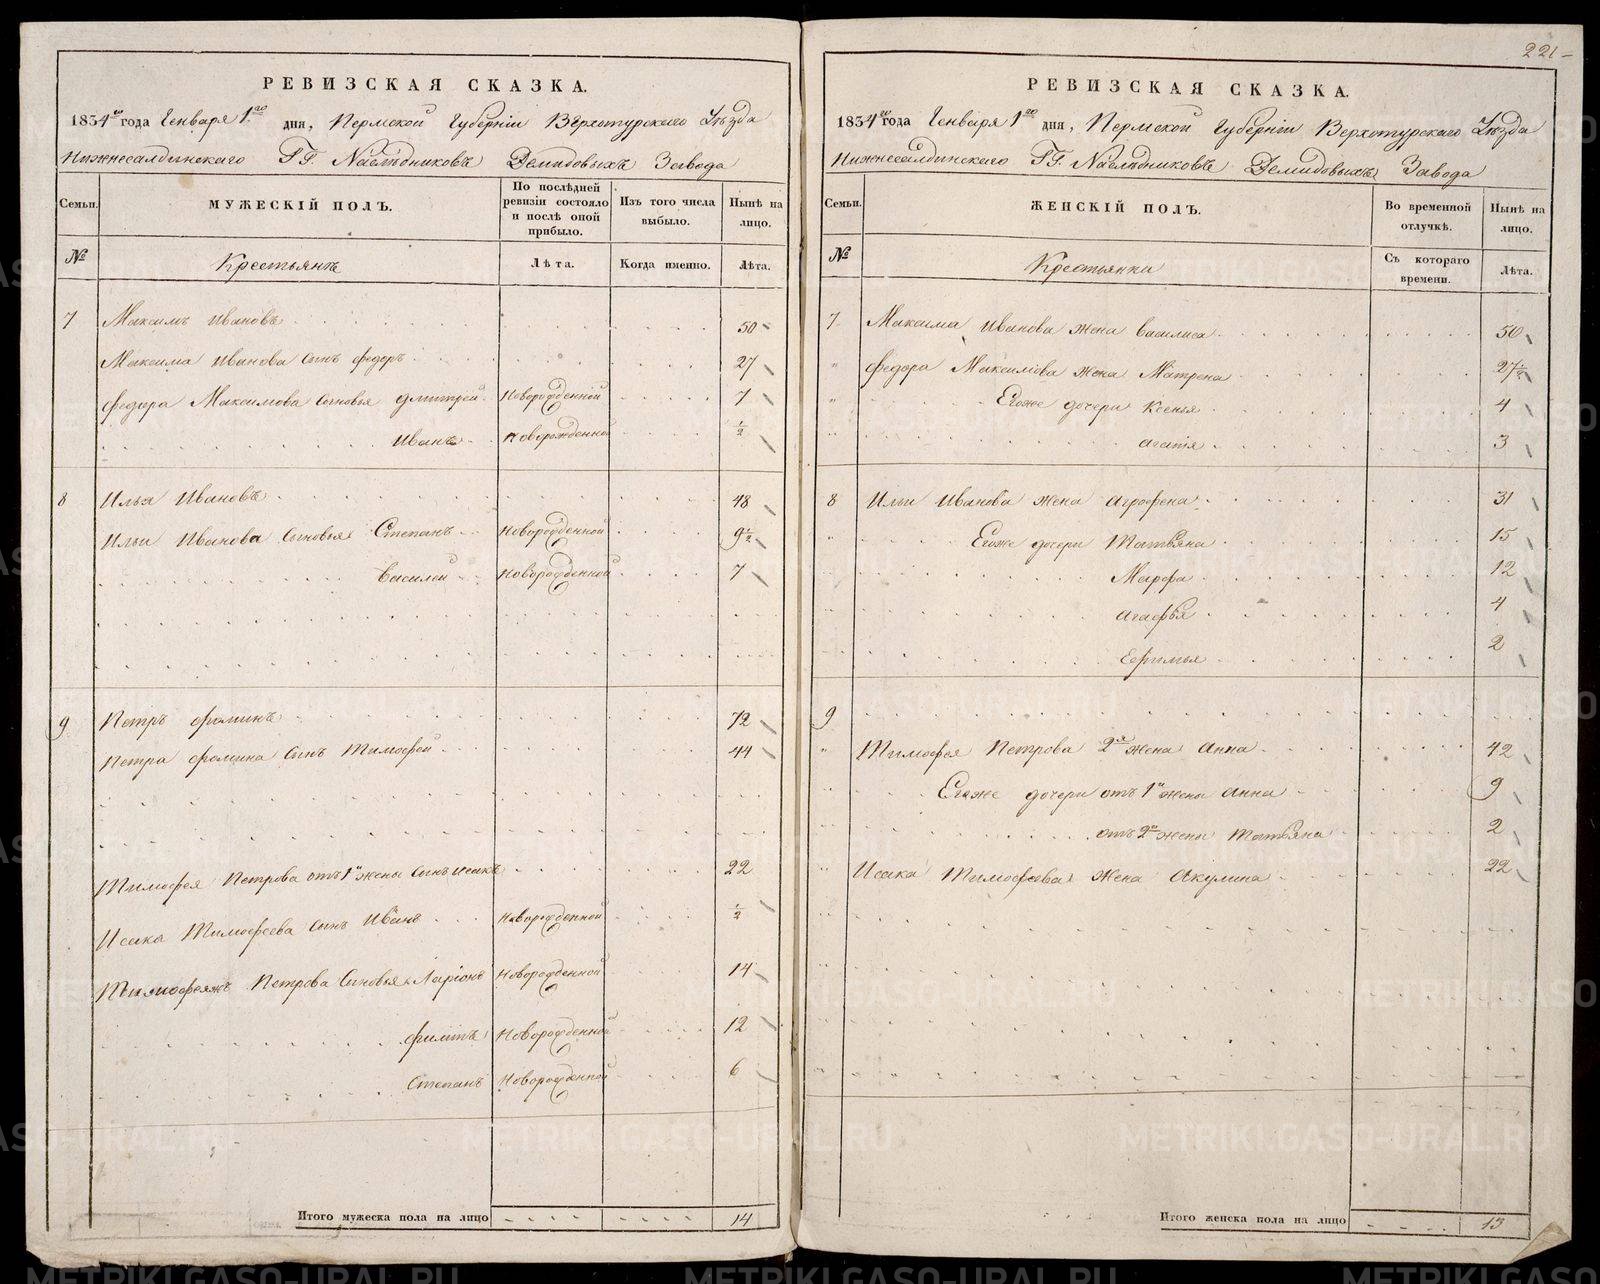 221
РЕВИЗСКАЯ СКАЗКА.
1834го года Генваря 1го дня, Пермской Губерніи Верхотурскаго Уѣзда
Нижнесалдинскаго ГГ. Наслѣдниковъ Демидовыхъ Завода
Семьи. МУЖЕСКІЙ ПОЛЪ. По послѣдней ревизіи состояло и послѣ оной прибыло. Изъ того числа выбыло. Нынѣ на лицо.
№ Крестьянъ Лѣта. Когда именно. Лѣта.
7 Максимъ Ивановъ 50
Максима Иванова сынъ Федоръ 27
Федора Максимова сыновья Дмитрей Новорожденной 7
Иванъ Новорожденной ½
8 Илья Ивановъ 48
Ильи Иванова сыновья Степанъ Новорожденной 9½
Василей Новорожденной 7
9 Петръ Фоминъ 72
Петра Фомина сынъ Тимофей 44
Тимофея Петрова отъ 1й жены сынъ Исакъ 22
Исака Тимофеева сынъ Иванъ Новорожденной ½
Тимофеяжъ Петрова сыновья Ларіонъ Новорожденной 14
Филатъ Новорожденной 12
Степанъ Новорожденной 6
Итого мужеска пола на лицо 14
РЕВИЗСКАЯ СКАЗКА.
1834го года Генваря 1го дня, Пермской Губерніи Верхотурскаго Уѣзда
Нижнесалдинскаго ГГ. Наслѣдниковъ Демидовыхъ Завода
Семьи. ЖЕНСКІЙ ПОЛЪ. Во временной отлучкѣ. Нынѣ на лицо.
№ Крестьянки Съ котораго времени. Лѣта.
7 Максима Иванова жена Василиса 50
Федора Максимова жена Матрена 27½
Егоже дочери Ксенья 4
Агатія 3
8 Ильи Иванова жена Агрофена 31
Егоже дочери Татьяна 15
Марфа 12
Агафья 4
Ефимья 2
9
Тимофея Петрова 2я жена Анна 42
Егоже дочери отъ 1й жены Анна 9
отъ 2й жены Татьяна 2
Исака Тимофеева жена Акулина 22
Итого женска пола на лицо 13
METRIKI.GASO-URAL.RU